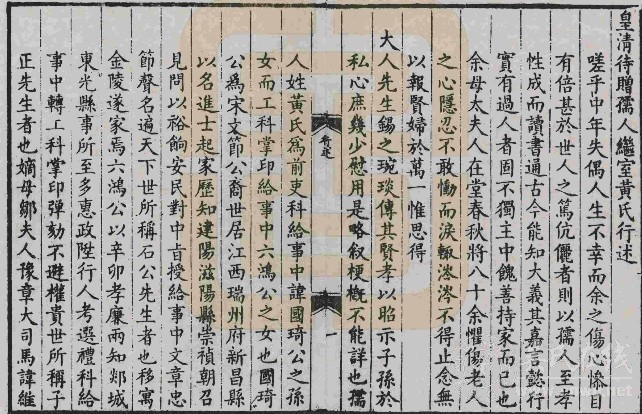 皇清待贈孺人繼室黃氏行述
嗟乎中年失偶人生不幸而余之傷心慘目
有倍甚於世人之篤伉儷者則以孺人至孝
性成而讀書通古今能知大義其嘉言懿行
實有過人者固不獨主中饋善持家而已也
余母太夫人在堂春秋將八十余懼傷老人
之心隱忍不敢慟而淚輒涔涔不得止念無
以報賢婦於萬一惟思得
大人先生錫之琬琰傳其賢孝以昭示子孫於
私心庶幾少慰用是略叙梗概不能詳也孺
行述
一
人姓黃氏爲前吏科給事中諱國琦公之孫
女而工科掌印給事中六鴻公之女也國琦
公爲宋文節公裔世居江西瑞州府新昌縣
以名進士起家歷知建陽滋陽縣崇禎朝召
見問以裕餉安民對中旨授給事中文章忠
節聲名遍天下世所稱石公先生者也移寓
金陵遂家焉六鴻公以辛卯孝廉兩知郯城
東光縣事所至多惠政陞行人考選禮科給
事中轉工科掌印彈劾不避權貴世所稱子
正先生者也嫡母鄒夫人豫章大司馬諱維